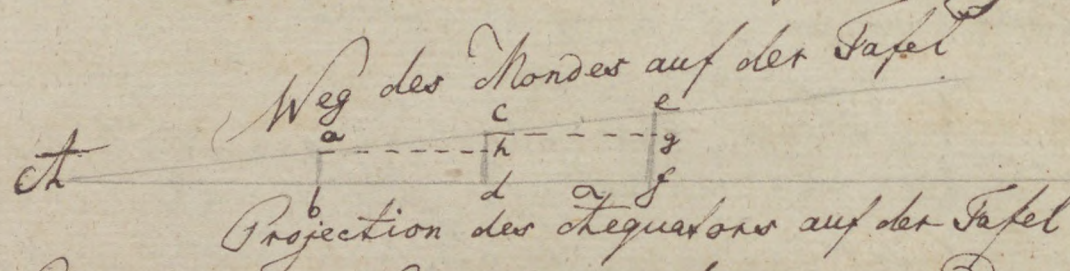 Weg des Mondes auf der Tafel
c e
a
A h g
d f
b
Projection des Aequators auf der Tafel